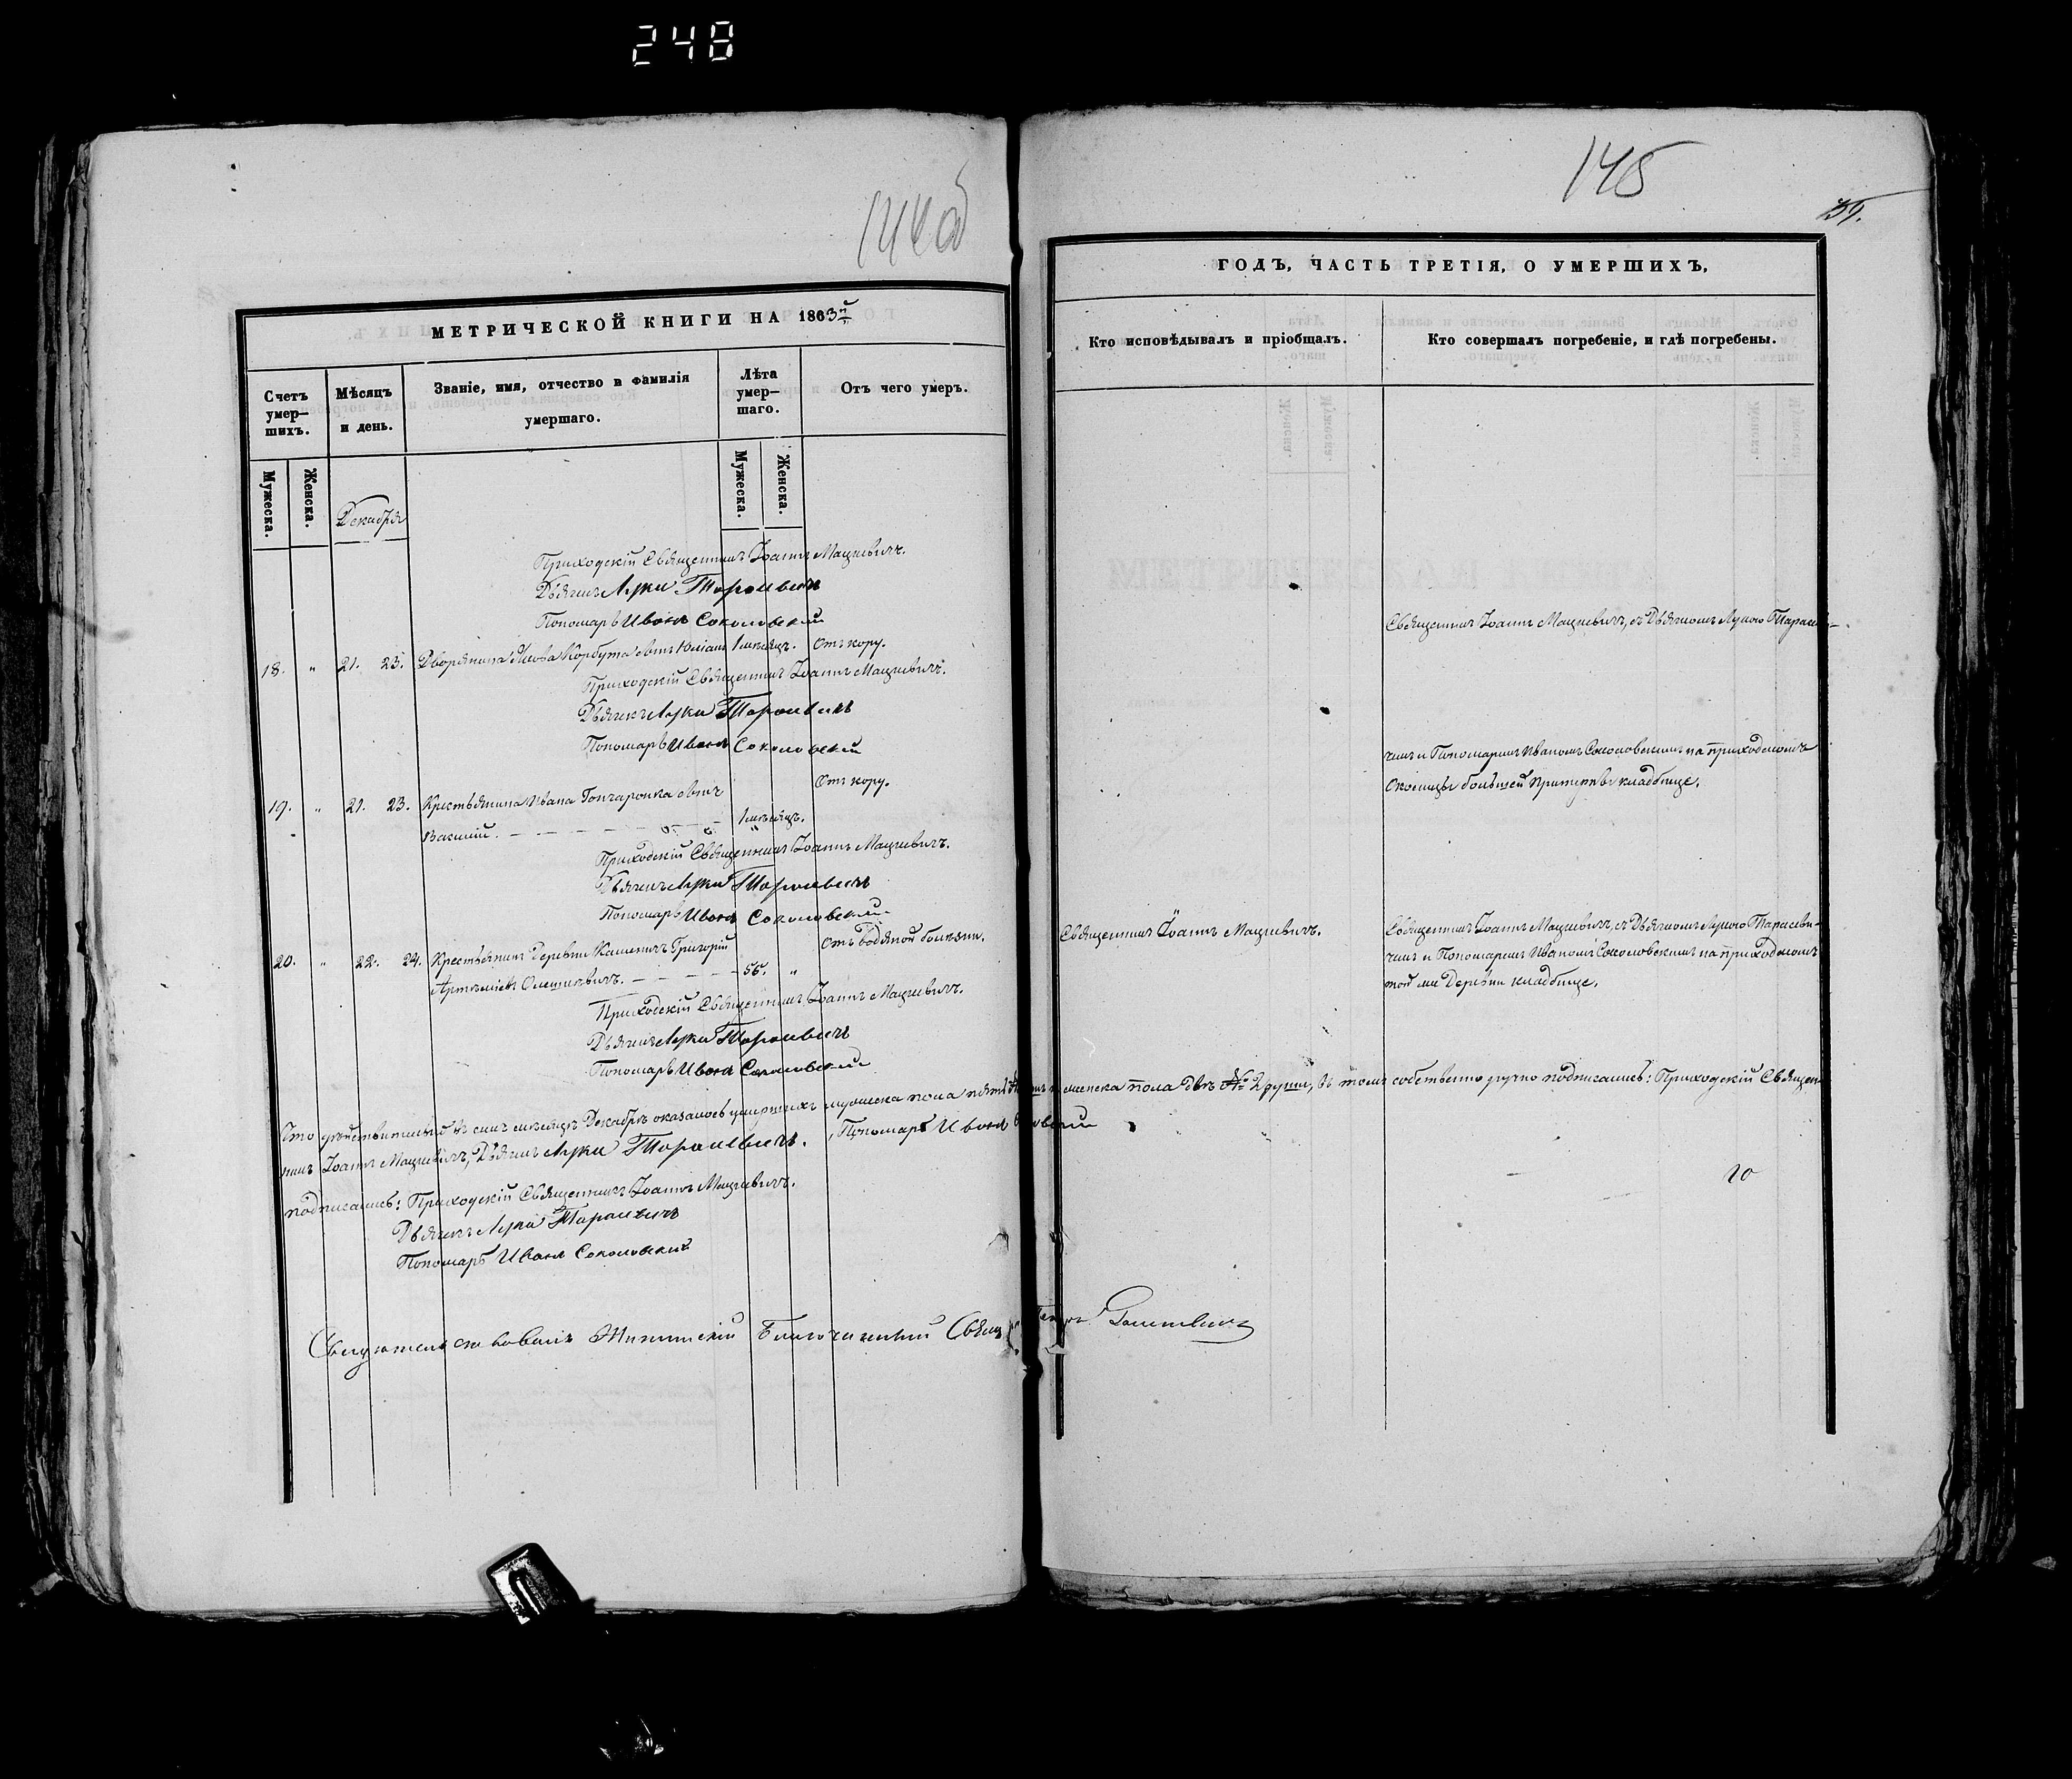 248
144об
МЕТРИЧЕСКОЙ КНИГИ НА 1863й
Счетъ умер-шихъ.
Мѣсяцъ и день.
Званіе, имя, отчество и фамилія умершаго.
Лѣта умер-шаго.
Отъ чего умеръ.
Мужеска.
Женска.
Декабря
Мужеска.
Женска.
Приходскій Священникъ Іоаннъ Мацкевичъ.
Дьячекъ Лука Тарасевичъ
Пономарь Иванъ Соколовскій
18. " 21. 23. Дворянина Корбута сынъ Юліанъ 1 мѣсяцъ. Отъ кору.
Приходскій Священникъ Іоаннъ Мацкевичъ.
Дьячекъ Лука Тарасевичъ
Пономарь Иванъ Соколовскій
19. " 21. 23. Крестьянина Ивана Гончаронка сынъ Отъ кору.
Василій. 1 мѣсяцъ. "
Приходскій Священникъ Іоаннъ Мацкевичъ.
Дьячекъ Лука Тарасевичъ
Пономарь Иванъ Соколовскій
20. " 22. 24. Крестьянинъ Деревни Григорій Отъ водяной болѣзни.
55. "
Приходскій Священникъ Іоаннъ Мацкевичъ.
Дьячекъ Лука Тарасевичъ
Пономарь Иванъ Соколовскій
Что дѣйствительно въ семъ мѣсяцѣ Декабрѣ оказалось умершихъ мужеска пола пять женска пола двѣ № 2 души, въ томъ собственно ручно подписались: Приходскій Священ-
никъ Іоаннъ Мацкевичъ, Дьячекъ Лука Тарасевичъ. Пономарь Иванъ
подписались: Приходскій Священникъ Іоаннъ Мацкевичъ.
Дьячекъ Лука Тарасевичъ
Пономарь Иванъ Соколовскій
Свидѣтельствовалъ Благочинный Свящ.
145
39.
ГОДЪ, ЧАСТЬ ТРЕТІЯ, О УМЕРШИХЪ.
Кто исповѣдывалъ и пріобщалъ.
Кто совершалъ погребеніе, и гдѣ погребены.
Священникъ Іоаннъ Мацкевичъ, съ Дьячкомъ Лукою Тарасеви-
чемъ и Пономаремъ Иваномъ Соколовскимъ на приходскомъ
Околицы большей кладбище.
Священникъ Іоаннъ Мацкевичъ.
Священникъ Іоаннъ Мацкевичъ, съ Дьячкомъ Лукою Тарасеви-
чемъ и Пономаремъ Иваномъ Соколовскимъ на приходскомъ
той же Деревни кладбище.
20